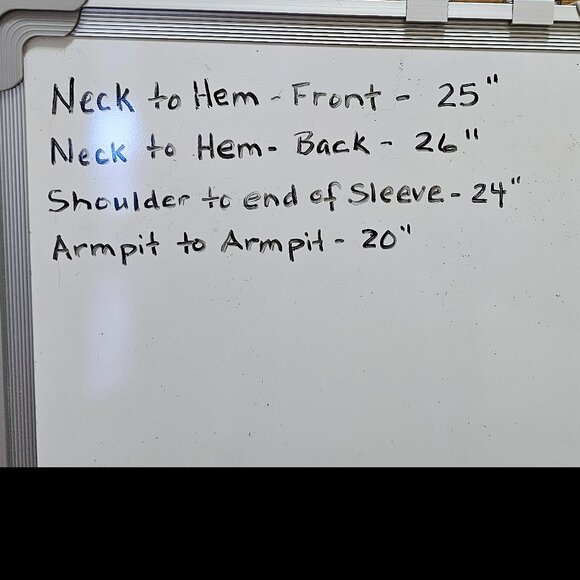 Neck to Hem - Front - 25"
Neck to Hem - Back - 26"
Shoulder to end of Sleeve - 24"
Armpit to Armpit - 20"